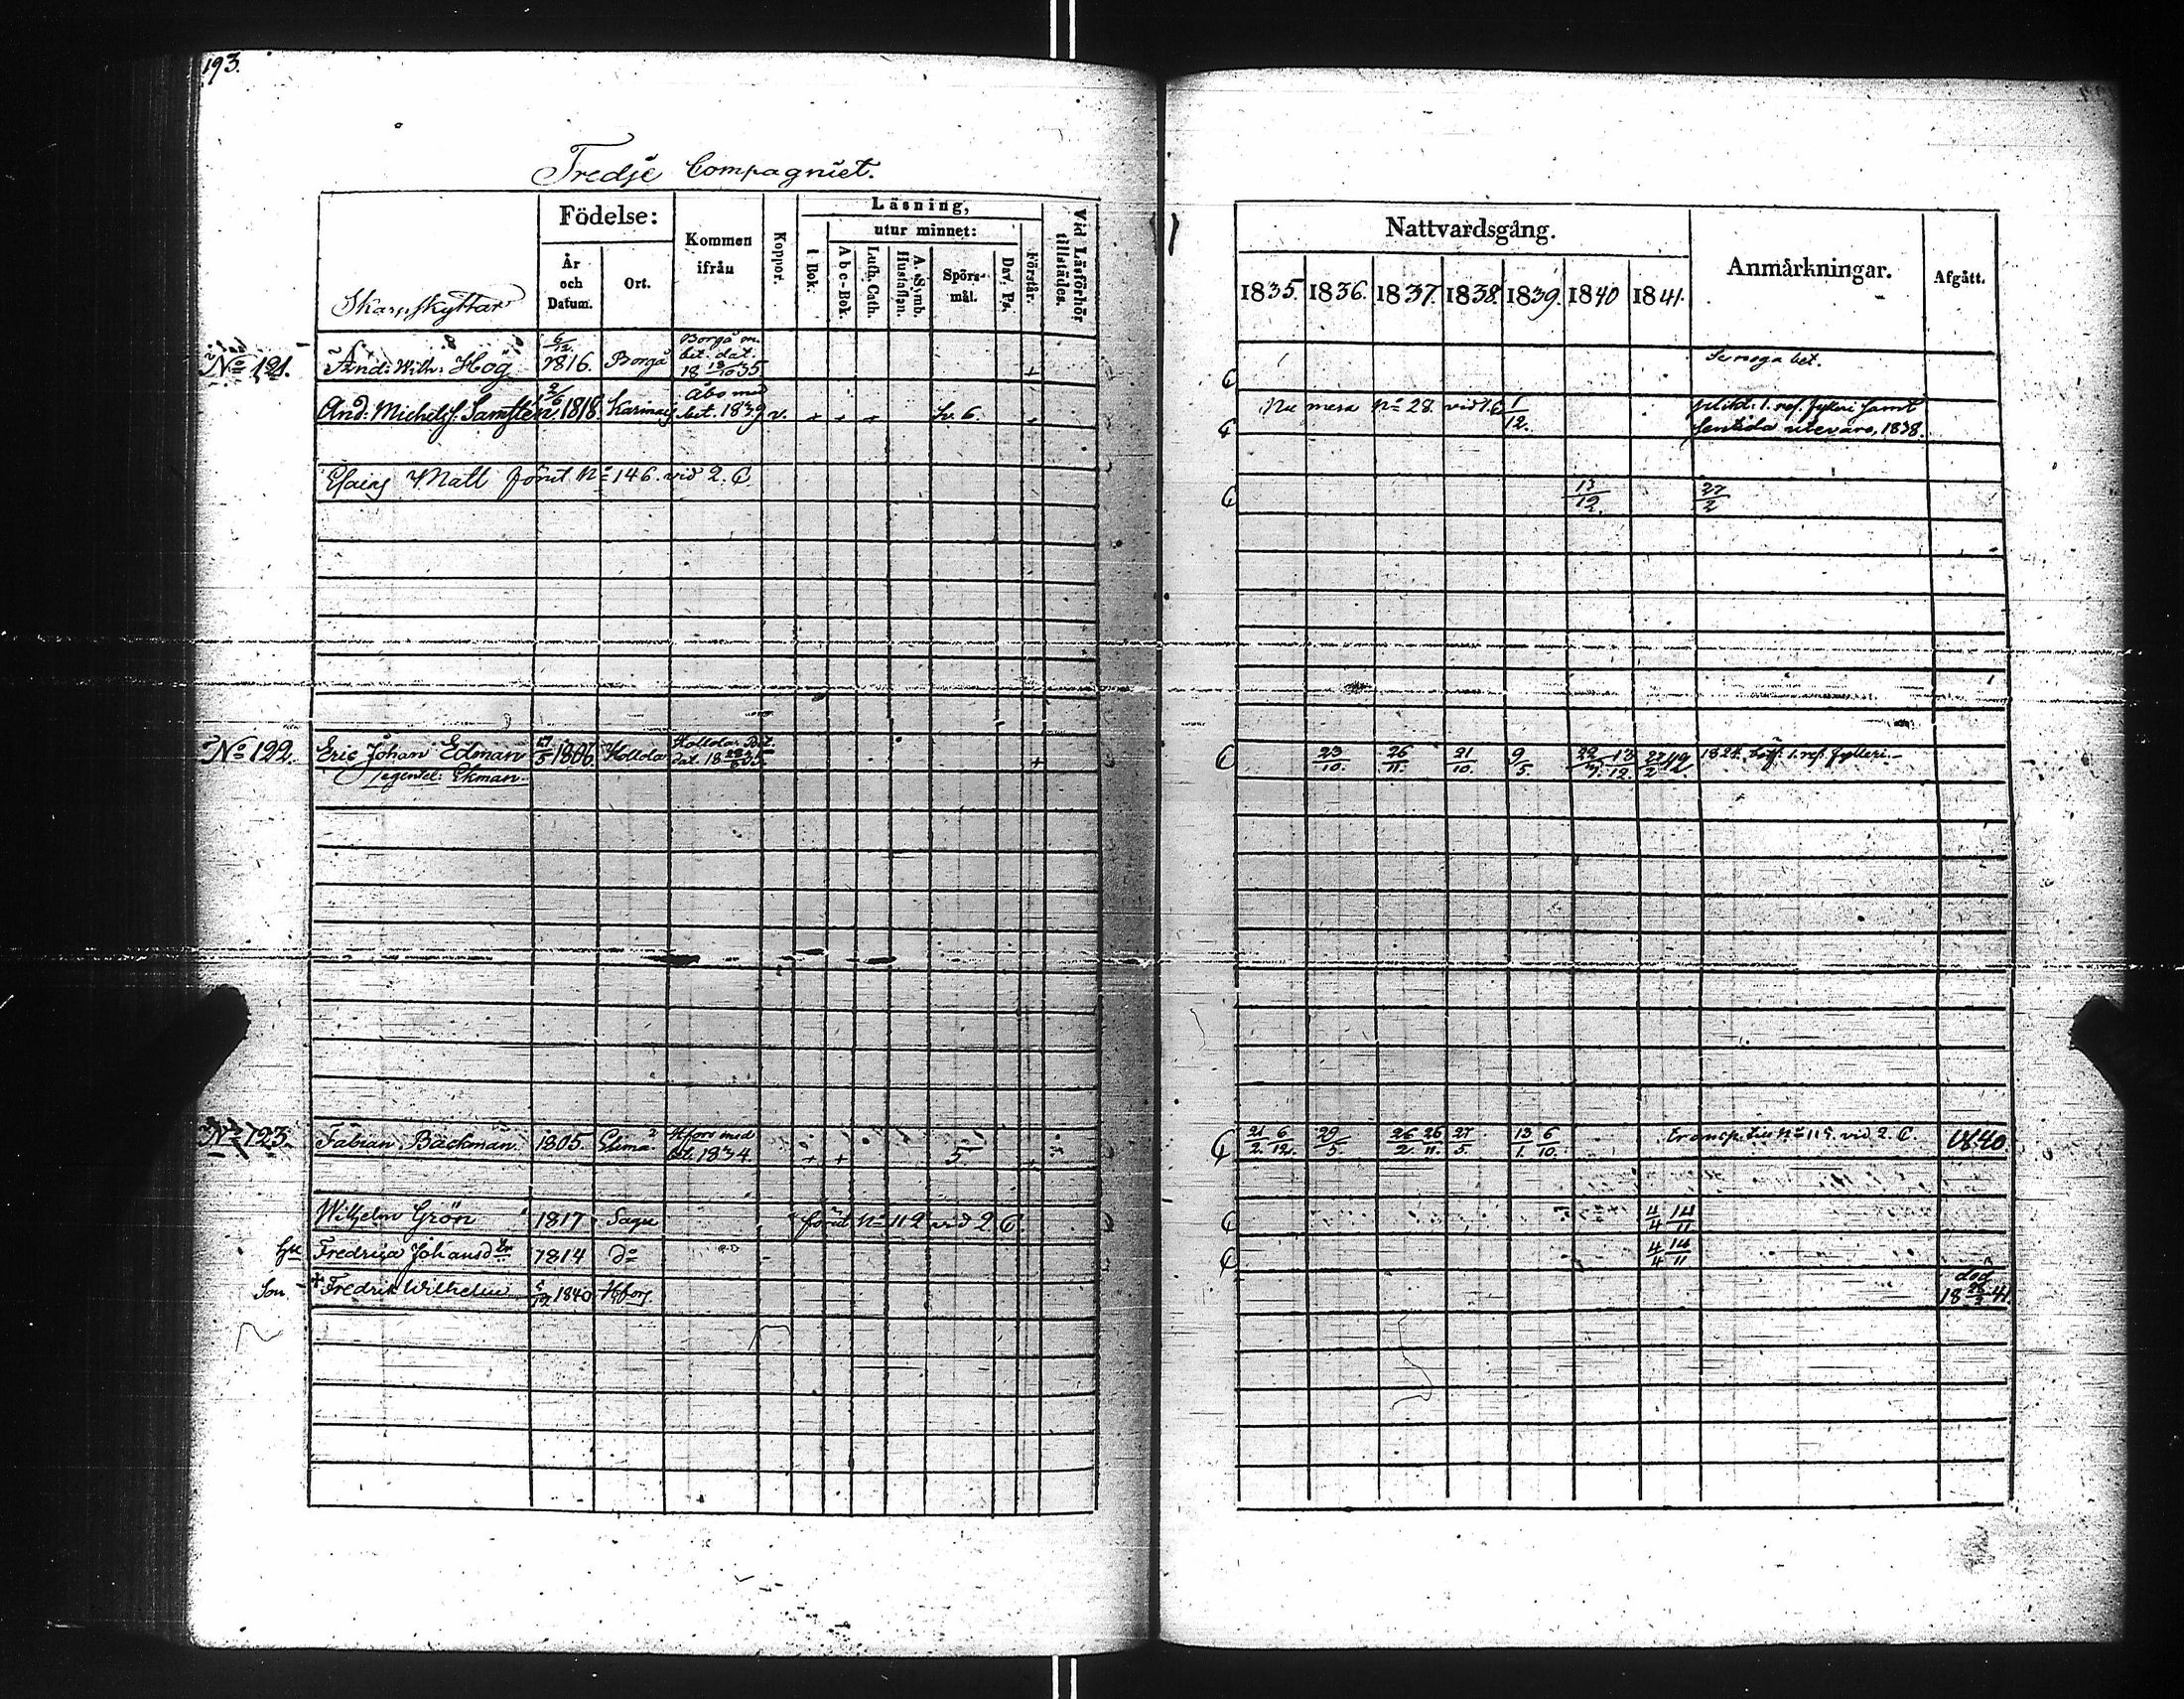 193.
Tredje Compagniet.
Skarpskyttar
Födelse:
År och Datum.
Ort.
Kommen ifrån
Koppor.
Läsning,
i Bok.
utur minnet:
Abc-Bok.
Luth. Cath.
A. Symb. Hustaflan.
Spörs-mål.
Dav. Ps.
Förstår.
Vid Läsförhör tillstädes.
Nattvardsgång.
1835. 1836. 1837. 1838. 1839. 1840 1841.
Anmärkningar.
Afgått.
No 121. And: Wilh: Hög 6/12 1816. Borgå Borgå m. bet. dat. 18 13/10 35. +
And: Michelss. 1818. Karinais Åbo med bet. 1839 v. + + + 6. Nu mera No 28. vid 1. C 1/12. plikt. 1. res. fylleri samt 1838.
Esaias Mall förut No 146. vid 2. C. 13/12. 27/2
No 122. Eric Johan Edman 1806. Hollola Hollola bet. dat. + 23/10. 26/11. 21/10. 9/5. 13/12. 27/2 1. res. fylleri.
egentel: Ekman.
No 123. Fabian Backman. 1805. Elimä Hfors med bet. 1834. + + 5. 21/2. 6/12. 29/5. 26/2. 26/11. 27/5. 13/1. 6/10. transp. till No 119. vid 2. C. 1840.
Wilhelm Grön 1817 Sagu förut No 112 vid 2 C. 4/4 14/11
Hu Fredrica Johansdtr 1814 do 4/4 14/11
Son + Fredrik Wilhelm 1840 Hfors död 41